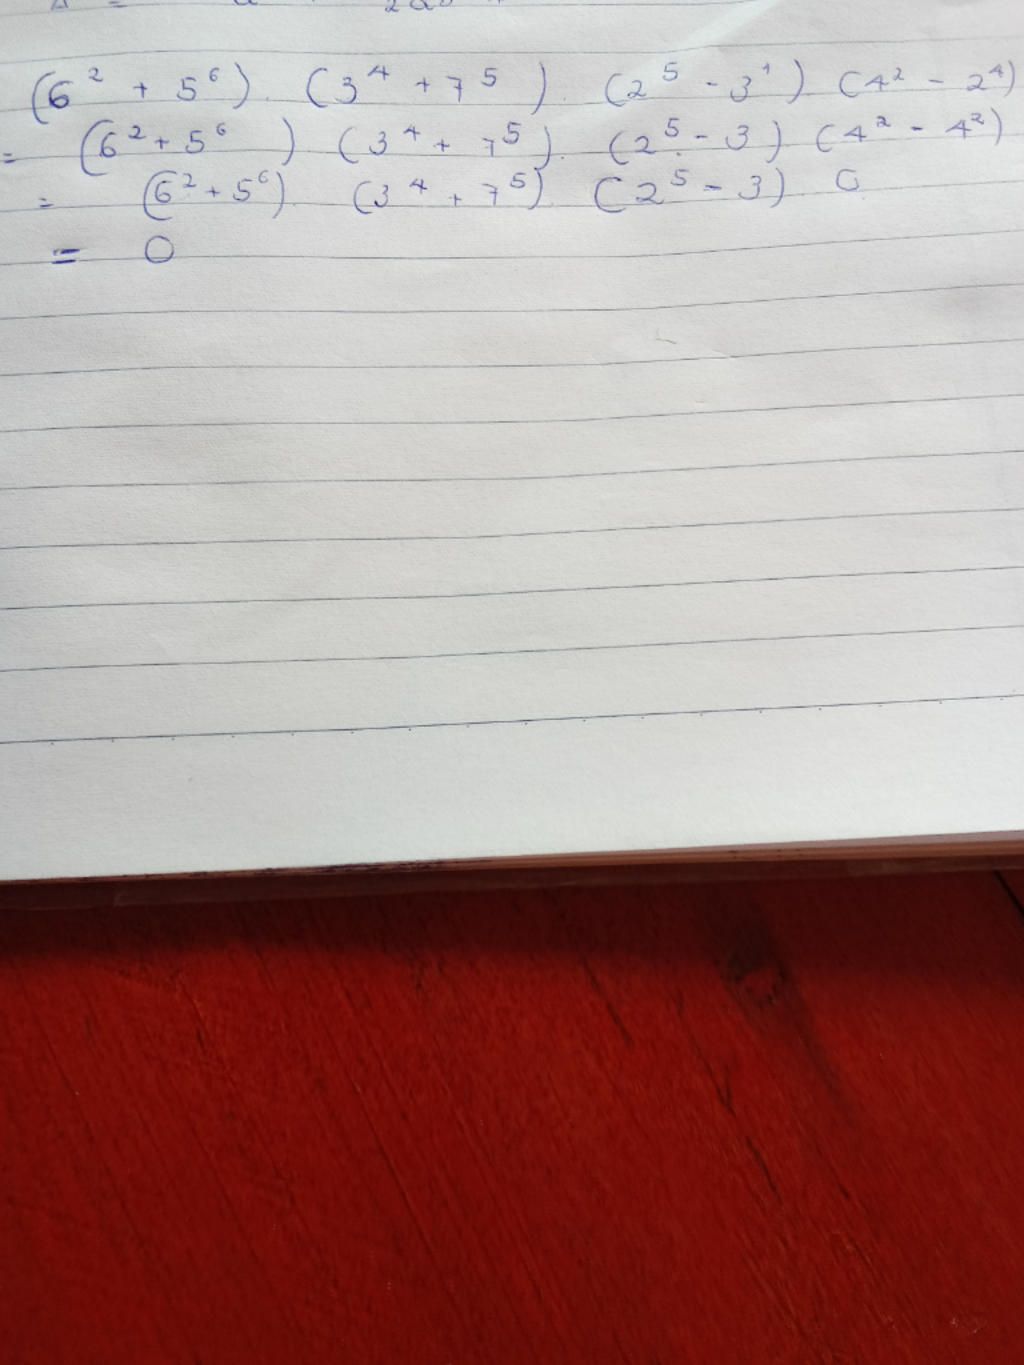 (6² + 5⁶). (3⁴ + 7⁵). (2⁵ - 3¹) (4² - 2⁴)
= (6² + 5⁶) (3⁴ + 7⁵). (2⁵ - 3) (4² - 4²)
= (6² + 5⁶). (3⁴ + 7⁵). (2⁵ - 3). 0
= 0